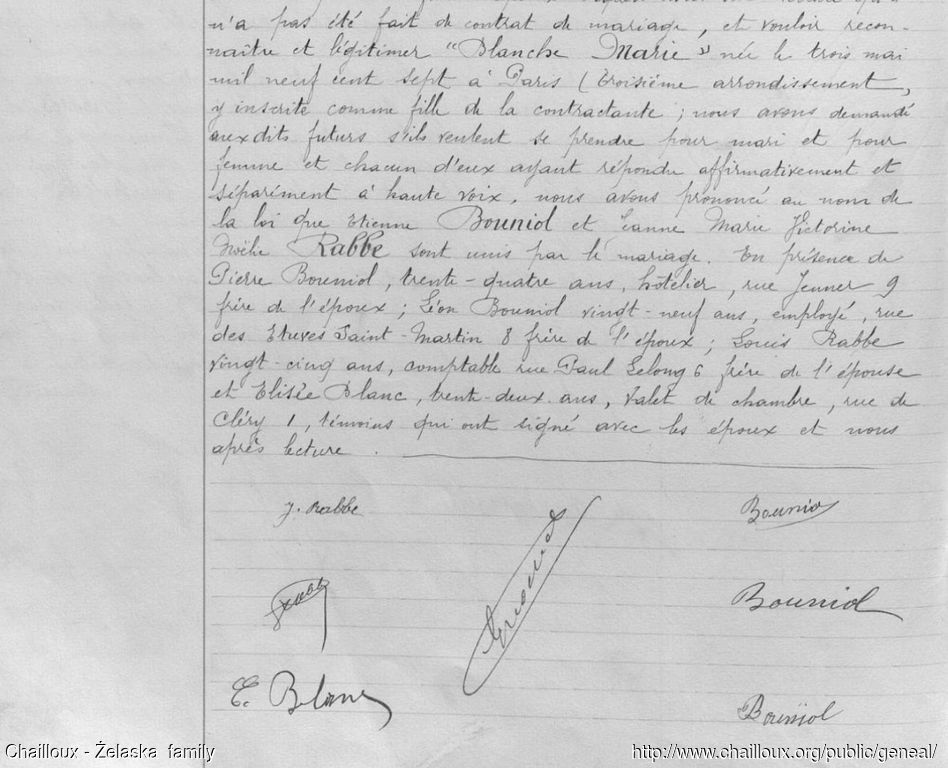 n'a pas été fait de contrat de mariage, et vouloir recon-
naître et légitimer "Blanche Marie" née le trois mai
mil neuf cent sept à Paris (troisième arrondissement,
y inscrite comme fille de la contractante ; nous avons demandé
auxdits futurs s'ils veulent se prendre pour mari et pour
femme et chacun d'eux ayant répondu affirmativement et
séparément à haute voix, nous avons prononcé au nom de
la loi que Etienne Bouniol et Jeanne Marie Victorine
Noélie Rabbe sont unis par le mariage. En présence de
Pierre Bouniol, trente-quatre ans, hôtelier, rue Jenner 9
frère de l'époux ; Léon Bouniol vingt-neuf ans, employé, rue
des Etuves Saint-Martin 8 frère de l'époux ; Louis Rabbe
vingt-cinq ans, comptable rue Paul Lelong 6 frère de l'épouse
et Elisée Blanc, trente-deux ans, valet de chambre, rue de
Cléry 1, témoins qui ont signé avec les époux et nous
après lecture .
J. Rabbe
Bouniol
Bouniol
E. Blanc
Bouniol
Chailloux - Żelaska family
http://www.chailloux.org/public/geneal/